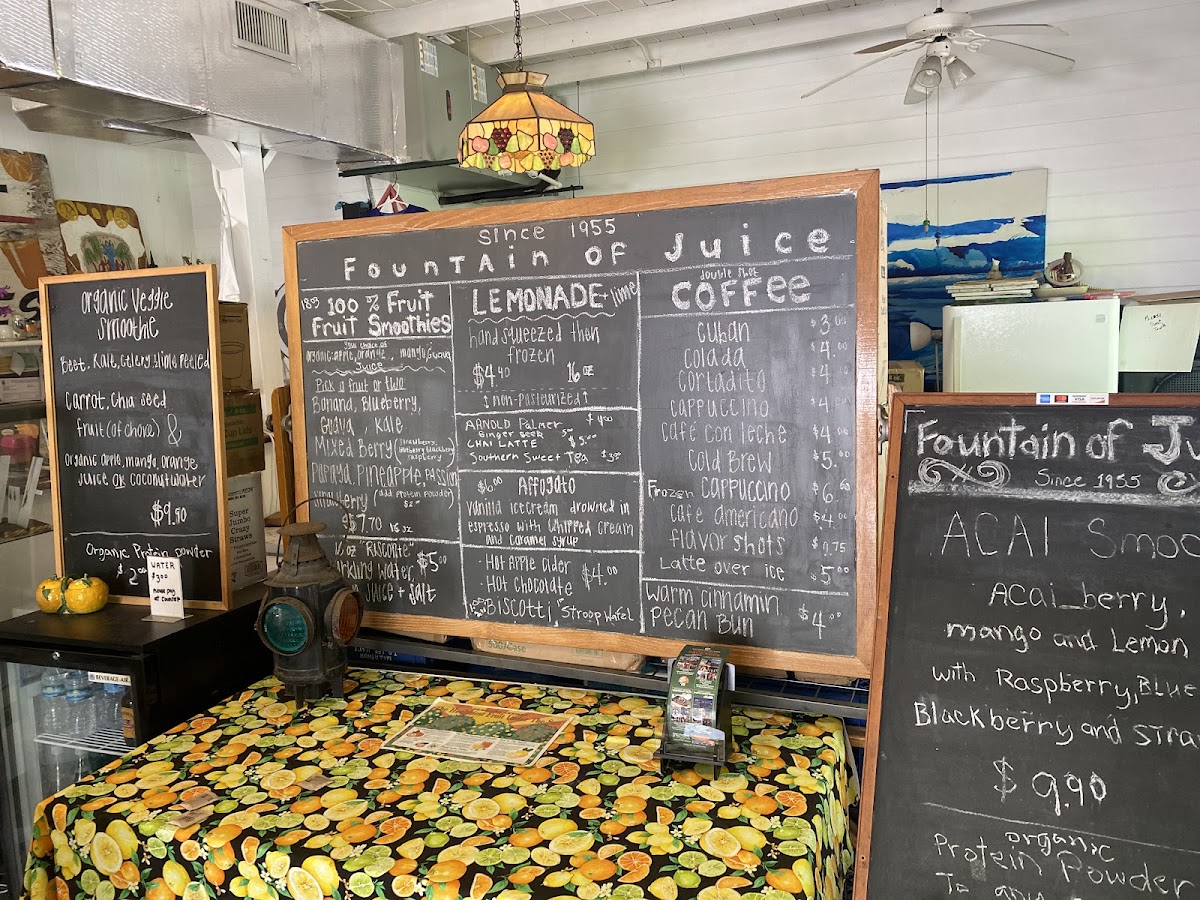 organic Veggie
smoothie
Beet, Kale, celery, lime peeled
Carrot, chia seed
fruit (of choice) &
Organic apple, mango, orange
Juice or coconutwater
$9.90
Organic Protein powder
$2.00
WATER
$3.00
BEVERAGE-AIR
Super
Jumbo
Crazy
Straws
Since 1955
Fountain of Juice
100 % Fruit
Fruit Smoothies
organic: apple, orange, mango, Guava
Juice
Pick a fruit or two
Banana, Blueberry,
Guava, kale
Mixed Berry (strawberry, blueberry, blackberry, raspberry)
Papaya, Pineapple, Passion
(add Protein powder)
$2.00
$7.70 16 oz
$5.00
Juice + Salt
LEMONADE + lime
handsqueezed then
frozen
$4.40 16 oz
↑ non-pasteurized ↑
ARNOLD Palmer $4.00
Ginger Beer
CHAI LATTE $5.00
Southern Sweet Tea $3.00
$6.00 Affogato
Vanilla icecream drowned in
espresso with whipped cream
and caramel syrup
- Hot Apple Cider
- Hot chocolate $4.00
Biscotti, Stroop Wafel
double shot
COFFee
Cuban $3.00
Colada $4.00
Cortadito $4.00
Cappuccino $4.00
café con leche $4.00
Cold Brew $5.00
Frozen Cappuccino $6.60
café americano $4.00
flavor shots $0.75
Latte over ice $5.00
Warm cinnamin
Pecan Bun $4.00
500/Case
Fountain of Ju
Since 1955
ACAI Smoo
Acai berry,
mango and Lemon
with Raspberry, Blue
Blackberry and Stra
$9.90
organic
Protein Powder
To any